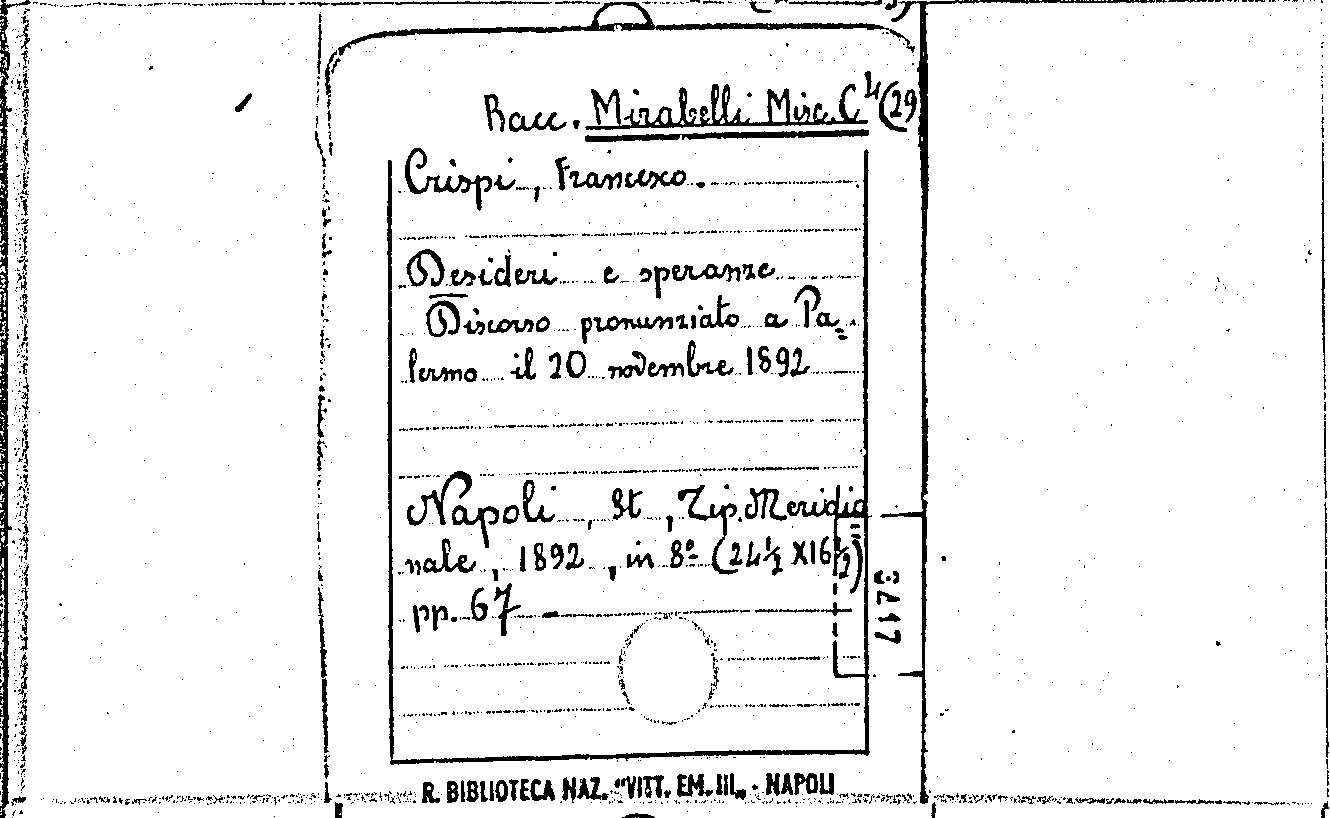 Racc. Mirabelli Misc. C⁴ (29
Crispi, Francesco.
Desideri e speranze
Discorso pronunziato a Pa=
lermo il 20 novembre 1892
Napoli, St, Tip. Meridio
nale, 1892, in 8º (24½ X16½)
pp. 67 -
3417
R. BIBLIOTECA NAZ. "VITT. EM. III„ - NAPOLI